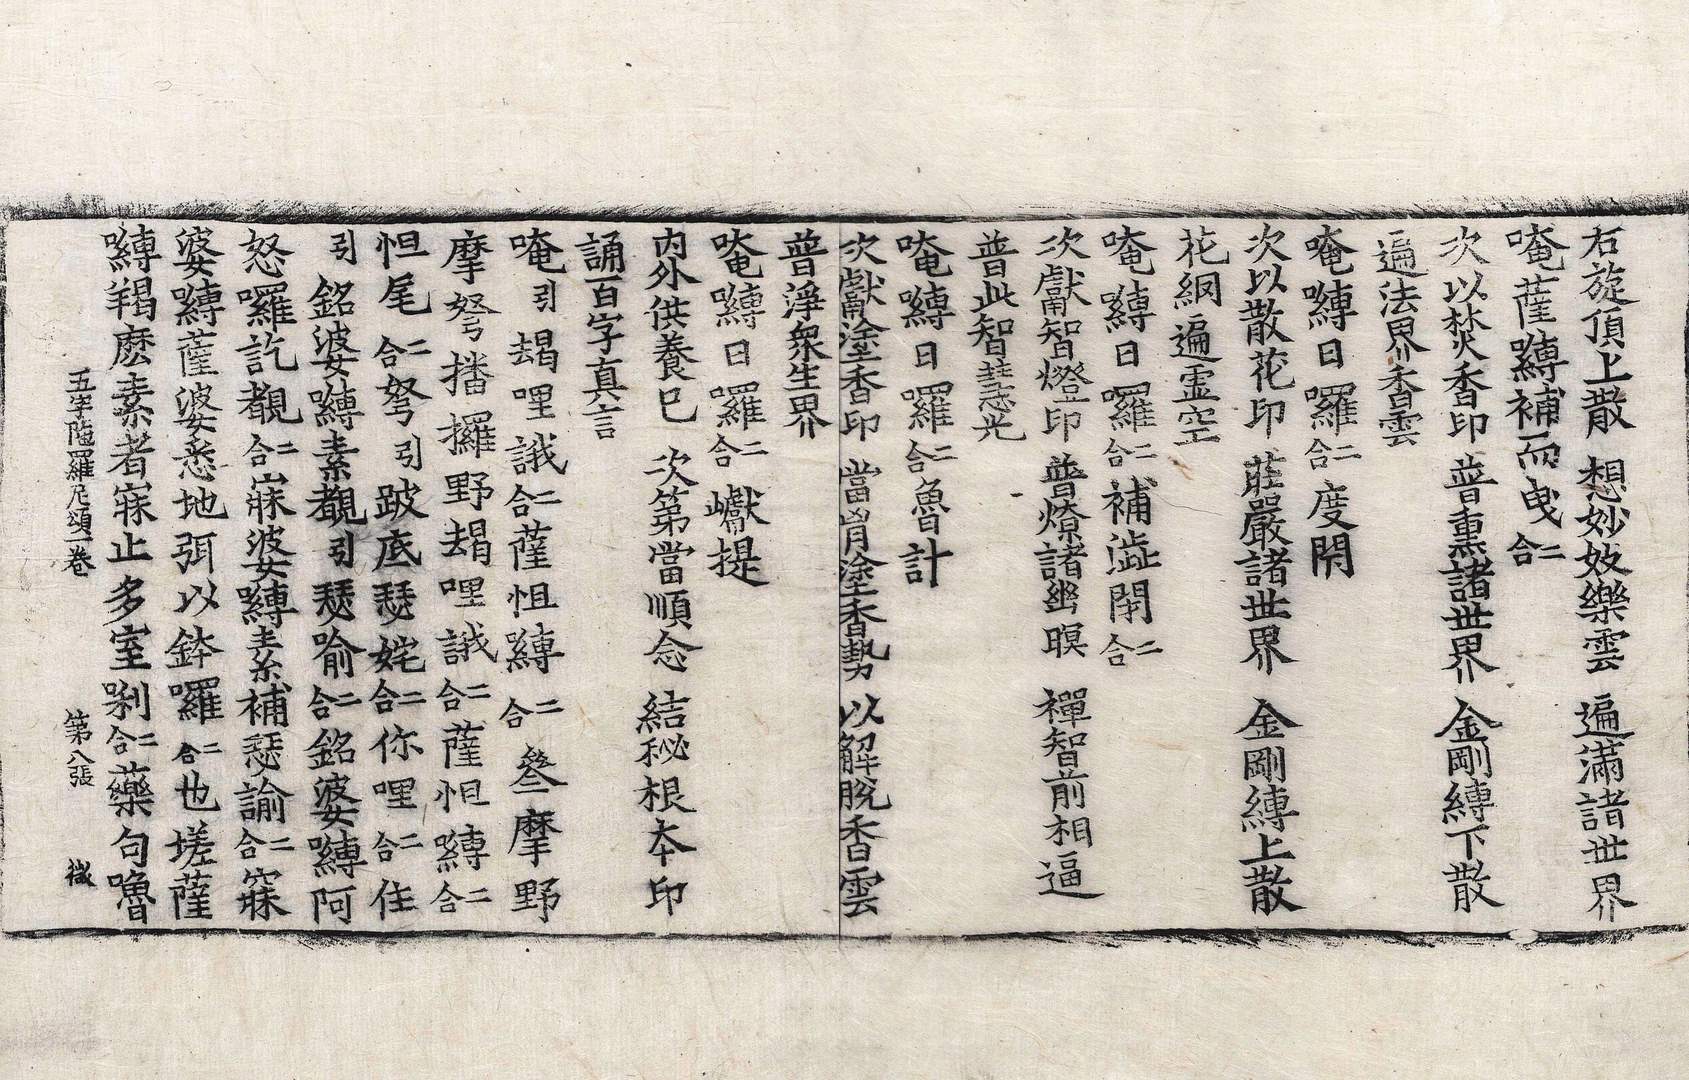 右旋頂上散 想妙妓樂雲 遍滿諸世界
唵薩嚩補而曳二合
次以焚香印 普熏諸世界 金剛縛下散
遍法界香雲
唵嚩日囉二合度閇
次以散花印 莊嚴諸世界 金剛縛上散
花網遍虛空
唵嚩日囉二合補澁閇二合
次獻智燈印 普燎諸幽暝 禪智前相逼
普此智慧光
唵嚩日囉二合魯計
次獻塗香印 當胷塗香勢 以解脫香雲
普淨衆生界
唵嚩日囉二合巘提
内外供養巳 次第當順念 結秘根本印
誦百字真言
唵引朅哩誐二合薩怛嚩二合 叄摩野
摩努播攞野朅哩誐二合薩怛嚩二合
怛尾二合努引跛底瑟姹二合你哩二合住
引銘婆嚩素覩引瑟喻二合銘婆嚩阿
怒囉訖覩二合寐婆嚩素補瑟諭二合寐
婆嚩薩婆悉地弭以鉢囉二合也搓薩
嚩羯麽素者寐止多室唎二合藥句嚕
五字陁羅尼頌一卷 第八張 徵